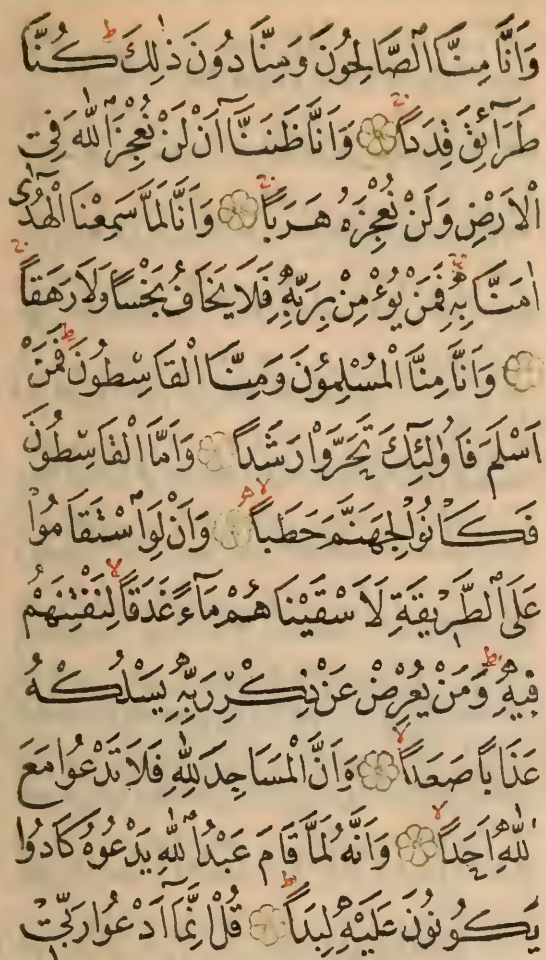 وَاَنَّا مِنَّا الصَّالِحُونَ وَمِنَّا دُونَ ذٰلِكَ ط كُنَّا
طَرَآئِقَ قِدَداً وَاَنَّا ظَنَنَّآ اَنْ لَنْ نُعْجِزَ اللّٰهَ فِى
الْاَرْضِ وَلَنْ نُعْجِزَهُ هَرَباً وَاَنَّا لَمَّا سَمِعْنَا الْهُدٰٓى
اٰمَنَّا بِهِ فَمَنْ يُؤْمِنْ بِرَبِّهِ فَلَا يَخَافُ بَخْساً وَلَا رَهَقاً
وَاَنَّا مِنَّا الْمُسْلِمُونَ وَمِنَّا الْقَاسِطُونَ ط فَمَنْ
اَسْلَمَ فَاُولٰٓئِكَ تَحَرَّوْا رَشَداً وَاَمَّا الْقَاسِطُونَ
فَكَانُوا لِجَهَنَّمَ حَطَباً لا وَاَنْ لَوِ اسْتَقَامُوا
عَلَى الطَّرِيقَةِ لَاَسْقَيْنَاهُمْ مَآءً غَدَقاً لا لِنَفْتِنَهُمْ
فِيهِ ط وَمَنْ يُعْرِضْ عَنْ ذِكْرِ رَبِّهِ يَسْلُكْهُ
عَذَاباً صَعَداً لا وَاَنَّ الْمَسَاجِدَ لِلّٰهِ فَلَا تَدْعُوا مَعَ
اللّٰهِ اَحَداً لا وَاَنَّهُ لَمَّا قَامَ عَبْدُ اللّٰهِ يَدْعُوهُ كَادُوا
يَكُونُونَ عَلَيْهِ لِبَداً ط قُلْ اِنَّمَآ اَدْعُوا رَبِّى